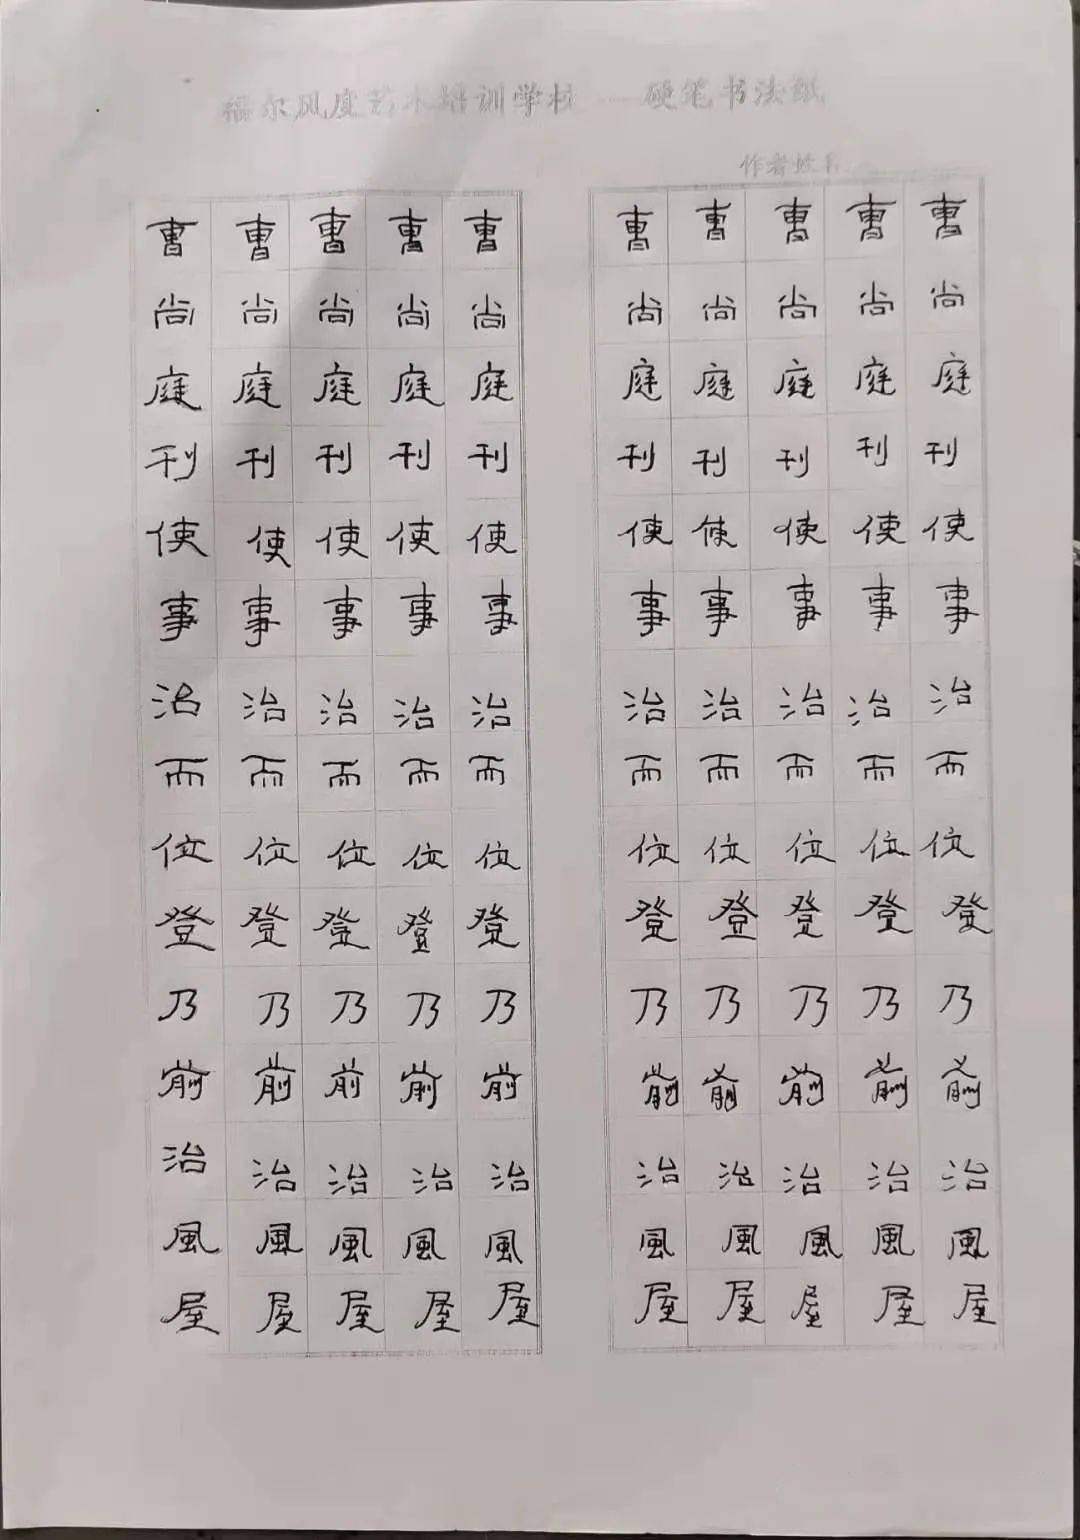 福尔风度艺术培训学校——硬笔书法纸
作者姓名
曹曹曹曹曹 曹曹曹曹曹
尚尚尚尚尚 尚尚尚尚尚
庭庭庭庭庭 庭庭庭庭庭
刊刊刊刊刊 刊刊刊刊刊
使使使使使 使使使使使
事事事事事 事事事事事
治治治治治 治治治治治
而而而而而 而而而而而
位位位位位 位位位位位
登登登登登 登登登登登
乃乃乃乃乃 乃乃乃乃乃
前前前前前 前前前前前
治治治治治 治治治治治
風風風風風 風風風風風
屋屋屋屋屋 屋屋屋屋屋